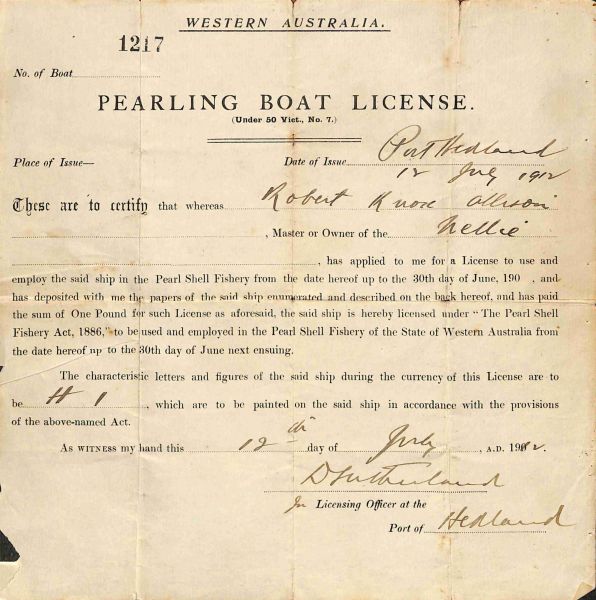 WESTERN AUSTRALIA.
1217
No. of Boat
PEARLING BOAT LICENSE.
(Under 50 Vict., No. 7.)
Port Hedland
Place of Issue— Date of Issue 12 July 1912
These are to certify that whereas Robert Knox Allison
, Master or Owner of the Nellie
, has applied to me for a License to use and
employ the said ship in the Pearl Shell Fishery from the date hereof up to the 30th day of June, 190 , and
has deposited with me the papers of the said ship enumerated and described on the back hereof, and has paid
the sum of One Pound for such License as aforesaid, the said ship is hereby licensed under "The Pearl Shell
Fishery Act, 1886," to be used and employed in the Pearl Shell Fishery of the State of Western Australia from
the date hereof up to the 30th day of June next ensuing.
The characteristic letters and figures of the said ship during the currency of this License are to
be H 1 , which are to be painted on the said ship in accordance with the provisions
of the above-named Act.
As witness my hand this 12th day of July , A.D. 1912.
D Sutherland
Licensing Officer at the
Port of Hedland